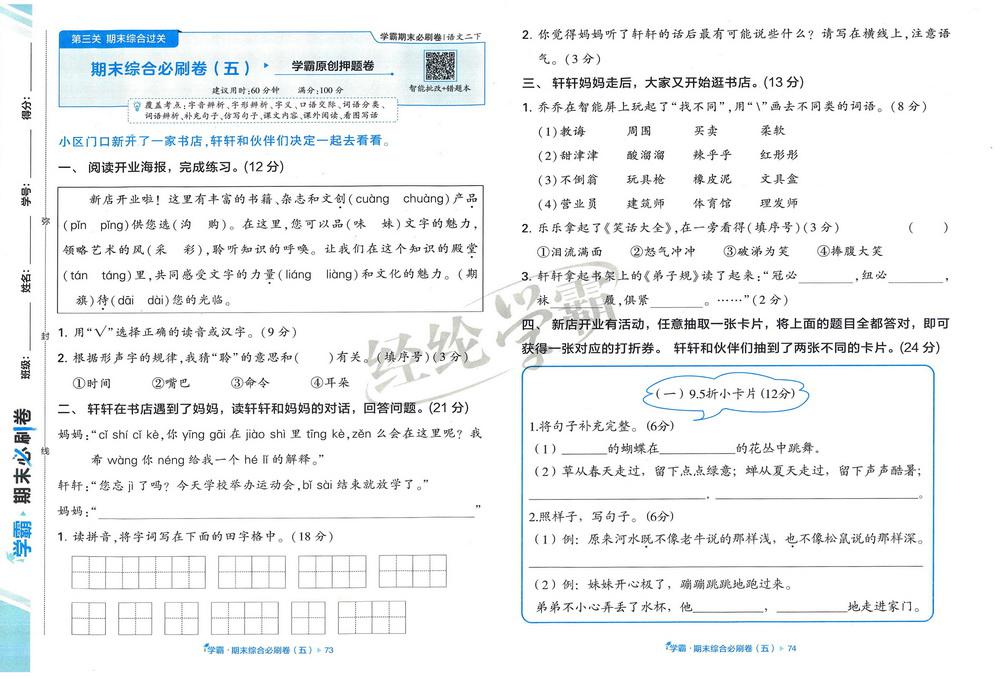 得分:
学号:
姓名:
班级:
弥
封
线
学霸 期末必刷卷
第三关 期末综合过关
学霸期末必刷卷|语文二下
期末综合必刷卷(五) 学霸原创押题卷
建议用时:60分钟 满分:100分
智能批改+错题本
覆盖考点:字音辨析、字形辨析、字义、口语交际、词语分类、
词语辨析、补充句子、仿写句子、课文内容、课外阅读、看图写话
小区门口新开了一家书店,轩轩和伙伴们决定一起去看看。
一、阅读开业海报,完成练习。(12分)
新店开业啦!这里有丰富的书籍、杂志和文创(cuàng chuàng)产品
(pǐn pǐng)供您选(沟 购)。在这里,您可以品(味 妹)文字的魅力,
领略艺术的风(采 彩),聆听知识的呼唤。让我们在这个知识的殿堂
(tán táng)里,共同感受文字的力量(liáng liàng)和文化的魅力。(期
旗)待(dāi dài)您的光临。
1. 用“√”选择正确的读音或汉字。(9分)
2. 根据形声字的规律,我猜“聆”的意思和( )有关。(填序号)(3分)
①时间 ②嘴巴 ③命令 ④耳朵
二、轩轩在书店遇到了妈妈,读轩轩和妈妈的对话,回答问题。(21分)
妈妈:“cǐ shí cǐ kè,你 yīng gāi 在 jiào shì 里 tīng kè,zěn 么会在这里呢?我
希 wàng 你 néng 给我一个 hé lǐ 的解释。”
轩轩:“您忘 jì 了吗?今天学校举办运动会,bǐ sài 结束就放学了。”
妈妈:“                    ”
1. 读拼音,将字词写在下面的田字格中。(18分)
学霸·期末综合必刷卷(五) 73
2. 你觉得妈妈听了轩轩的话后最有可能说些什么?请写在横线上,注意语
气。(3分)
三、轩轩妈妈走后,大家又开始逛书店。(13分)
1. 乔乔在智能屏上玩起了“找不同”,用“\”画去不同类的词语。(8分)
(1)教诲 周围 买卖 柔软
(2)甜津津 酸溜溜 辣乎乎 红彤彤
(3)不倒翁 玩具枪 橡皮泥 文具盒
(4)营业员 建筑师 体育馆 理发师
2. 乐乐拿起了《笑话大全》,在一旁看得(填序号)(3分) ( )
①泪流满面 ②怒气冲冲 ③破涕为笑 ④捧腹大笑
3. 轩轩拿起书架上的《弟子规》读了起来:“冠必________,纽必________,
袜________履,俱紧________。……”(2分)
四、新店开业有活动,任意抽取一张卡片,将上面的题目全都答对,即可
获得一张对应的打折券。轩轩和伙伴们抽到了两张不同的卡片。(24分)
(一)9.5折小卡片(12分)
1.将句子补充完整。(6分)
(1)________的蝴蝶在________的花丛中跳舞。
(2)草从春天走过,留下点点绿意;蝉从夏天走过,留下声声酷暑;
________________,________________。
2.照样子,写句子。(6分)
(1)例:原来河水既不像老牛说的那样浅,也不像松鼠说的那样深。
(2)例:妹妹开心极了,蹦蹦跳跳地跑过来。
弟弟不小心弄丢了水杯,他________,________地走进家门。
学霸·期末综合必刷卷(五) 74
经纶学霸